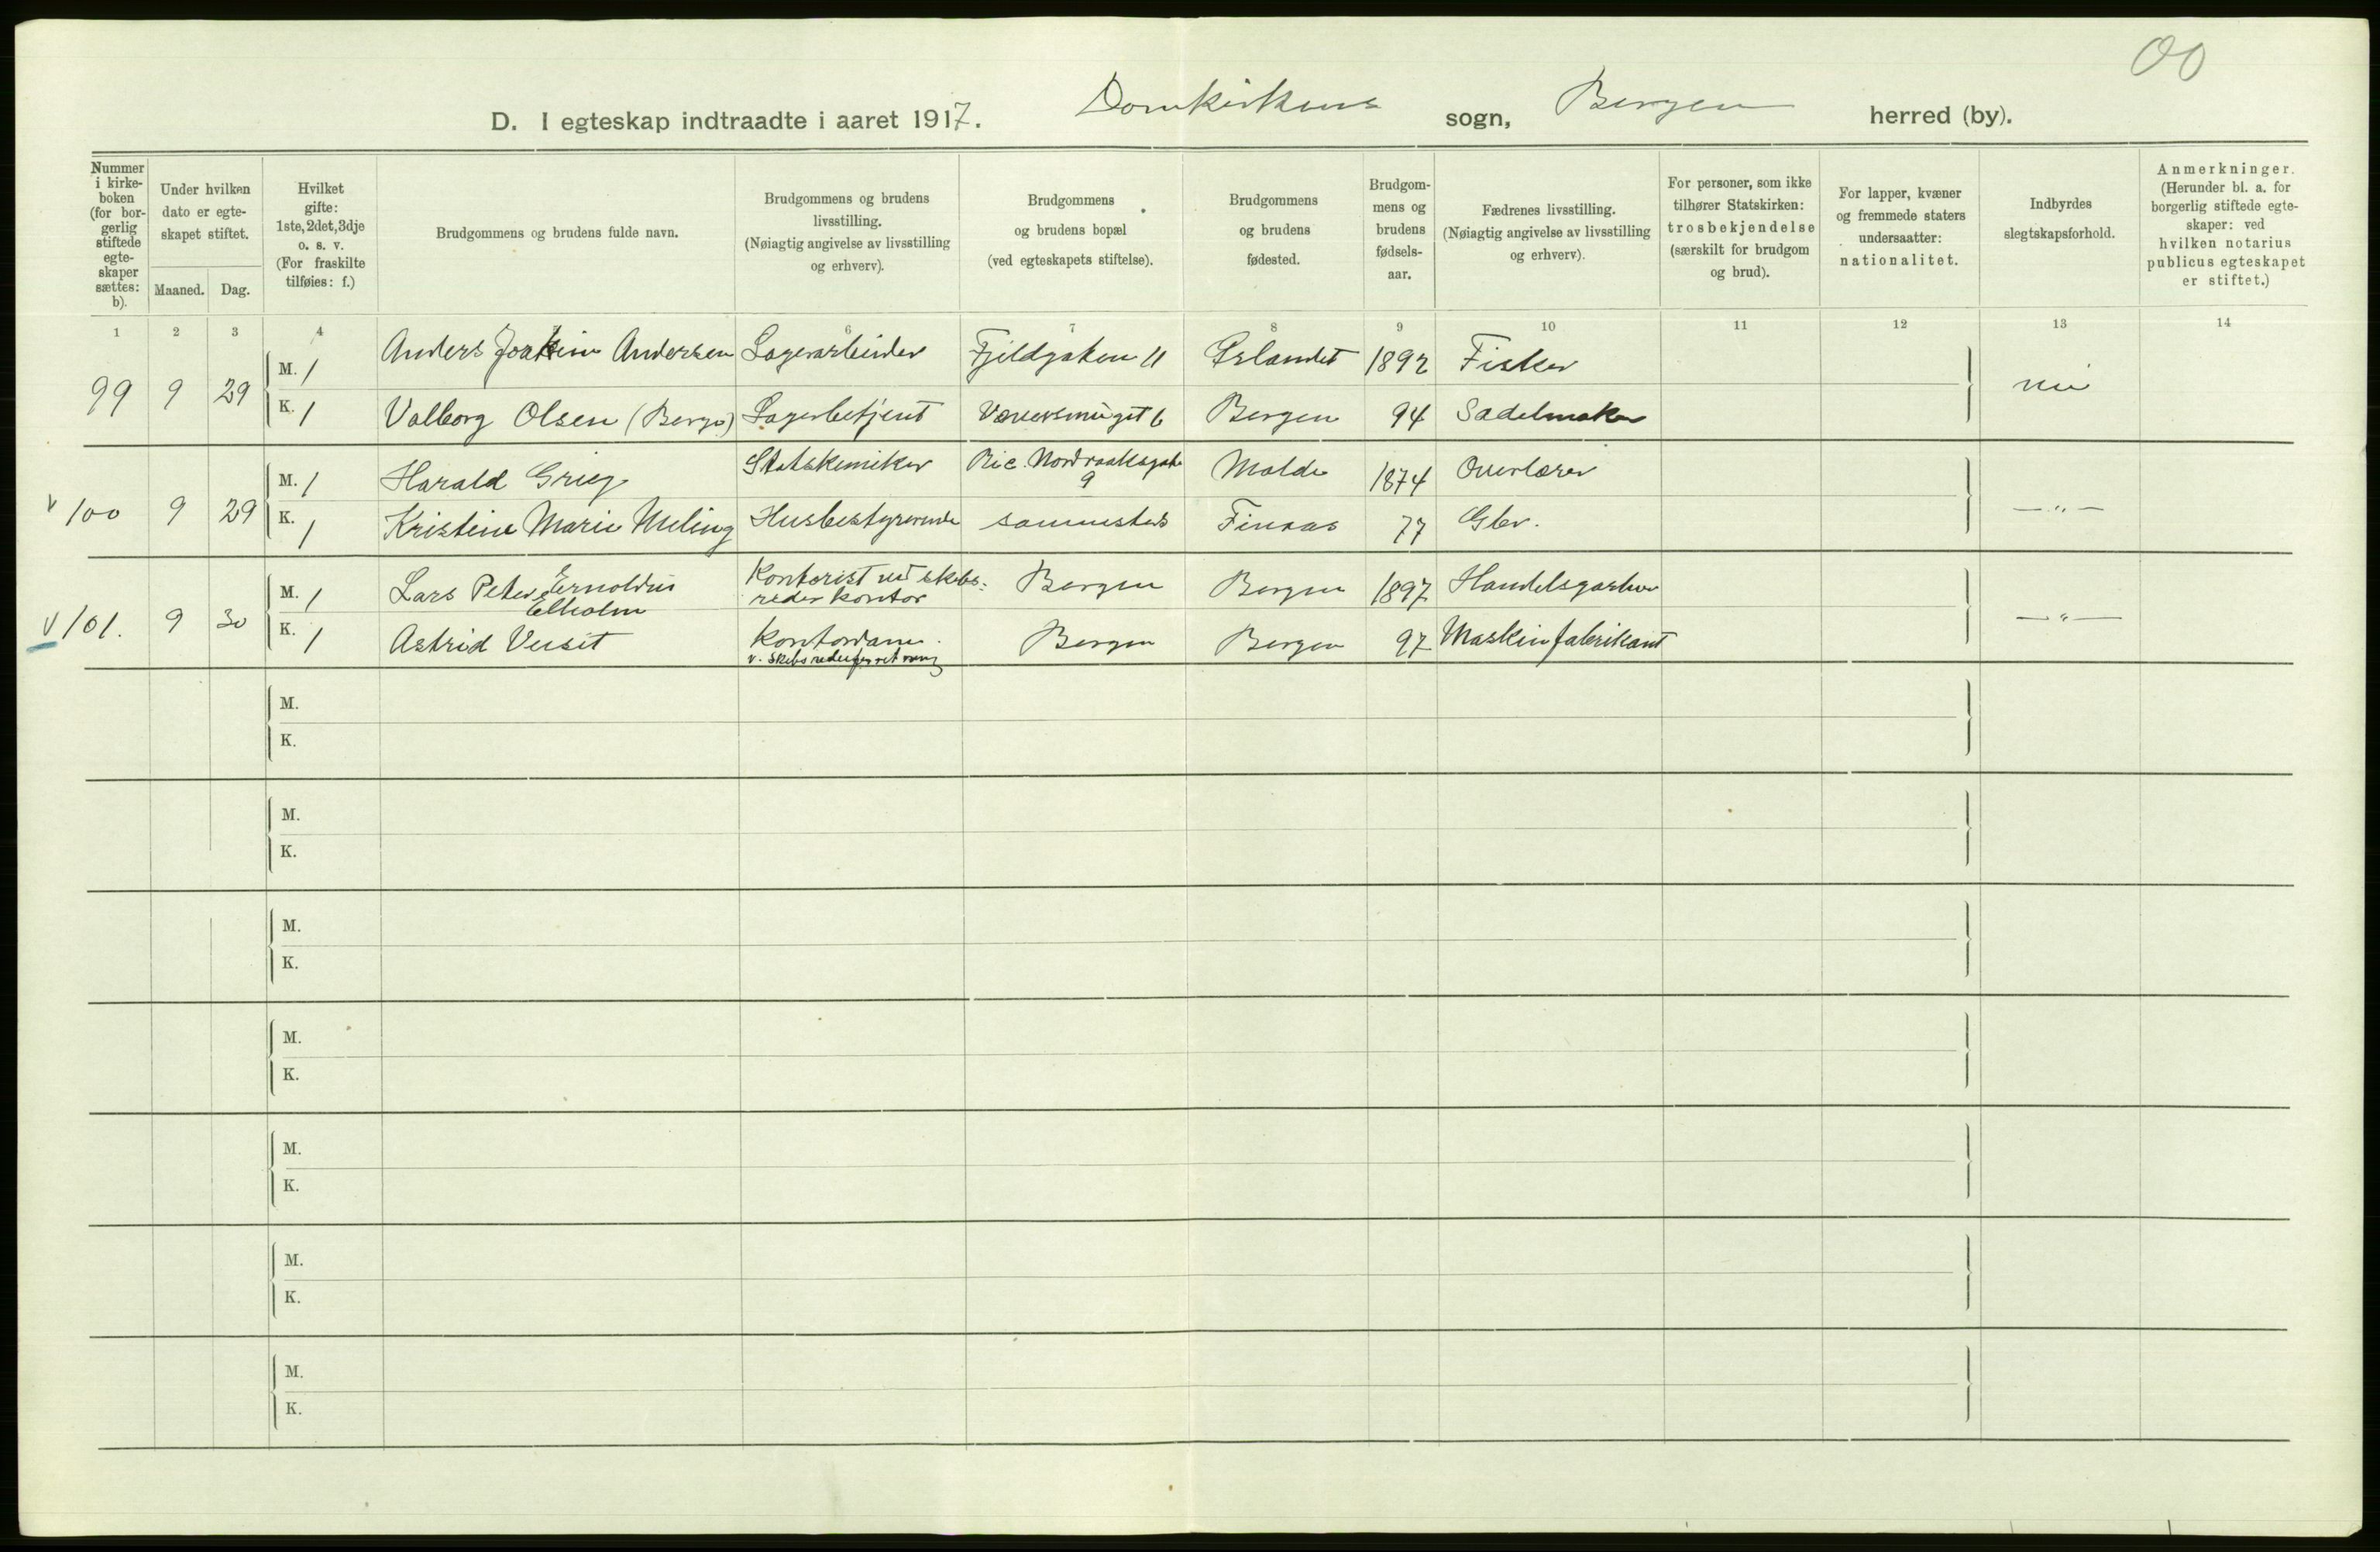 00
D. I egteskap indtraadte i aaret 1917. Domkirkens sogn, Bergen herred (by).
Nummer i kirke-boken (for bor-gerlig stiftede egte-skaper sættes: b).
Under hvilken dato er egte-skapet stiftet.
Maaned. Dag.
Hvilket gifte: 1ste, 2det, 3dje o. s. v. (For fraskilte tilføies: f.)
Brudgommens og brudens fulde navn.
Brudgommens og brudens livsstilling. (Nøiagtig angivelse av livsstilling og erhverv).
Brudgommens og brudens bopæl (ved egteskapets stiftelse).
Brudgommens og brudens fødested.
Brudgom-mens og brudens fødsels-aar.
Fædrenes livsstilling. (Nøiagtig angivelse av livsstilling og erhverv).
For personer, som ikke tilhører Statskirken: trosbekjendelse (særskilt for brudgom og brud).
For lapper, kvæner og fremmede staters undersaatter: nationalitet.
Indbyrdes slegtskapsforhold.
Anmerkninger. (Herunder bl. a. for borgerlig stiftede egte-skaper: ved hvilken notarius publicus egteskapet er stiftet.)
1 2 3 4 6 7 8 9 10 11 12 13 14
99 9 29 M. 1 Anders Joakim Andersen Lagerarbeider Fjeldgaten 11 Ørlandet 1892 Fisker
K. 1 Valborg Olsen (Berge) Lagerbetjent Væversmuget 6 Bergen 94 Sadelmaker nei
v 100 9 29 M. 1 Harald Grieg Statskemiker Ric. Nordraaksgate 9 Molde 1874 Overlærer
K. 1 Kristine Marie Meling Husbestyrerinde sammesteds Finnaas 77 Gbr. — " —
v 101. 9 30 M. 1 Lars Peter Ernoldus Elholm Kontorist ved skibs-reder kontor Bergen Bergen 1897 Handelsgartner
K. 1 Astrid Versit Kontordame v. skibsrederforretning Bergen Bergen 97 Maskinfabrikant — " —
M.
K.
M.
K.
M.
K.
M.
K.
M.
K.
M.
K.
M.
K.